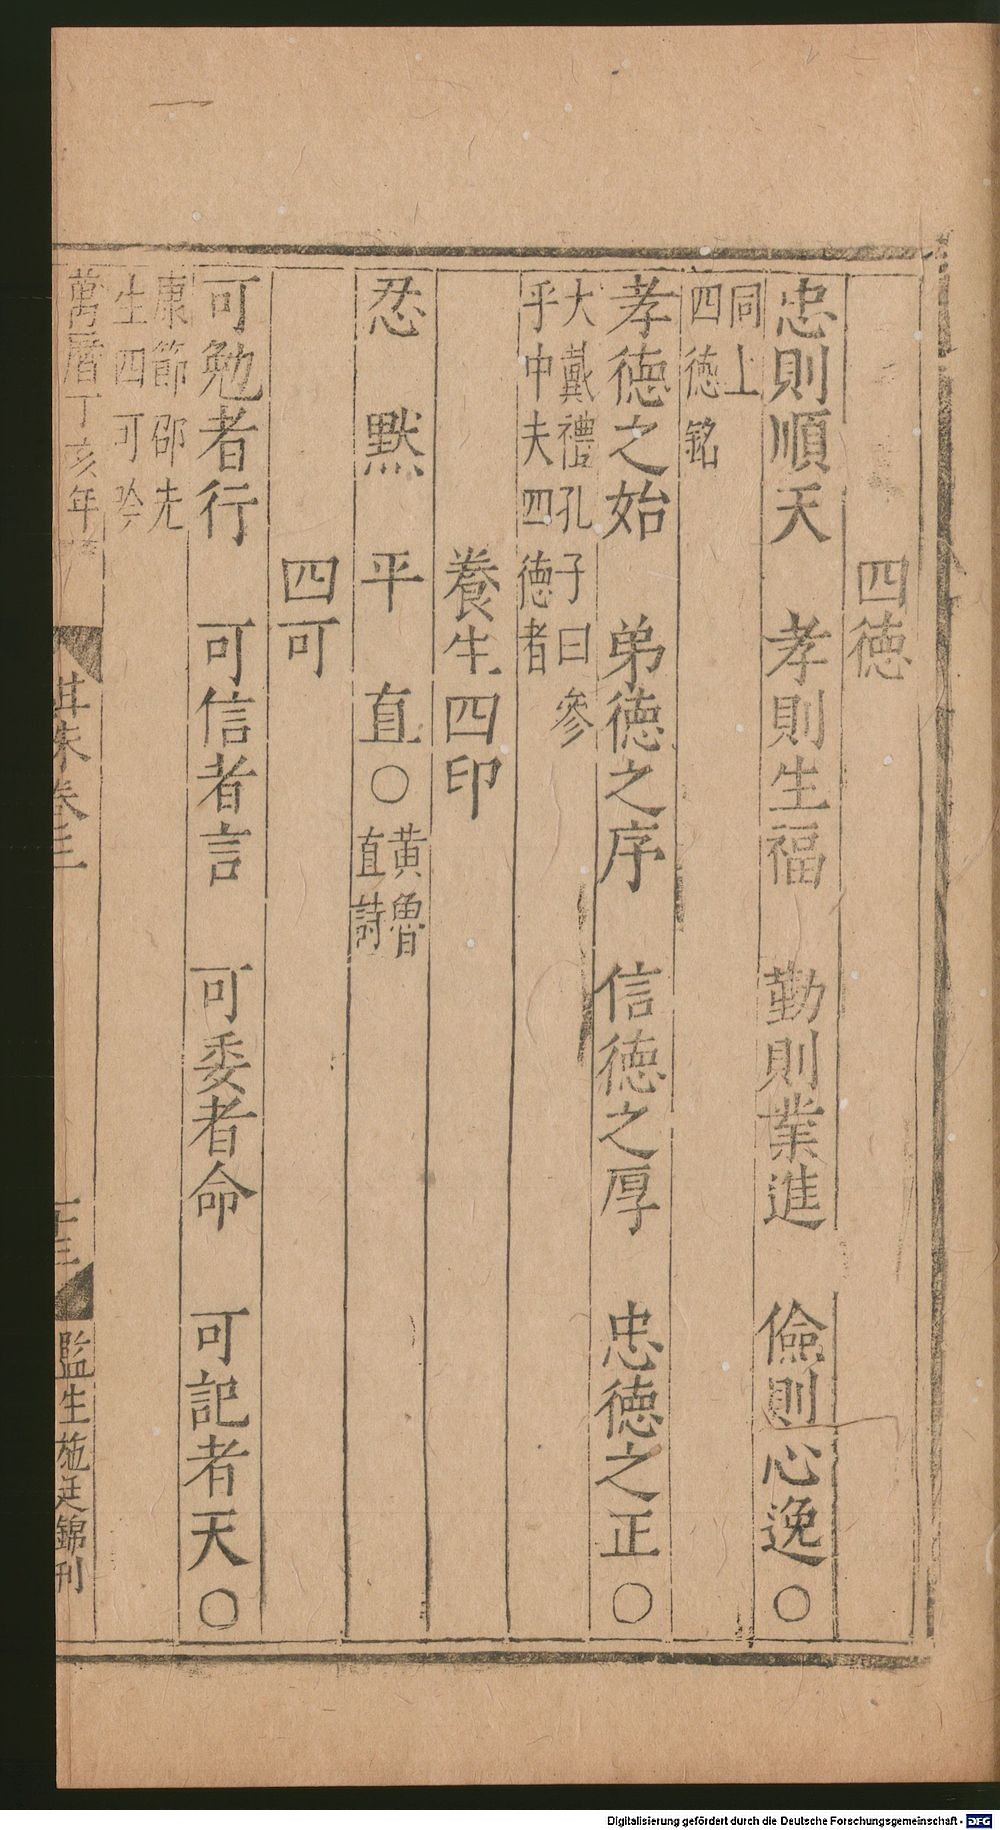 四徳
忠則順天　孝則生福　勤則業進　儉則心逸○
同上
四徳銘
孝徳之始　弟徳之序　信徳之厚　忠徳之正○
大戴禮孔子曰參
乎中夫四徳者
養生四印
忍　默　平　直○
黄魯
直詩
四可
可勉者行　可信者言　可委者命　可記者天○
康節邵先
生四可吟
萬曆丁亥年
珠卷三
十三
監生施廷錦刊
Digitalisierung gefördert durch die Deutsche Forschungsgemeinschaft - DFG